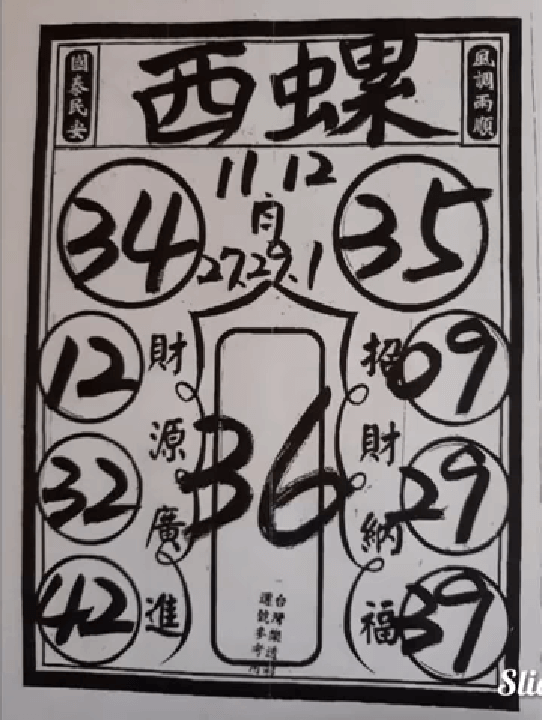 西螺
國泰民安
風調雨順
11.12
月
27.29.1
34
35
12
32
42
財源廣進
36
招財納福
09
29
39
台灣樂透
選號參考用
Slid